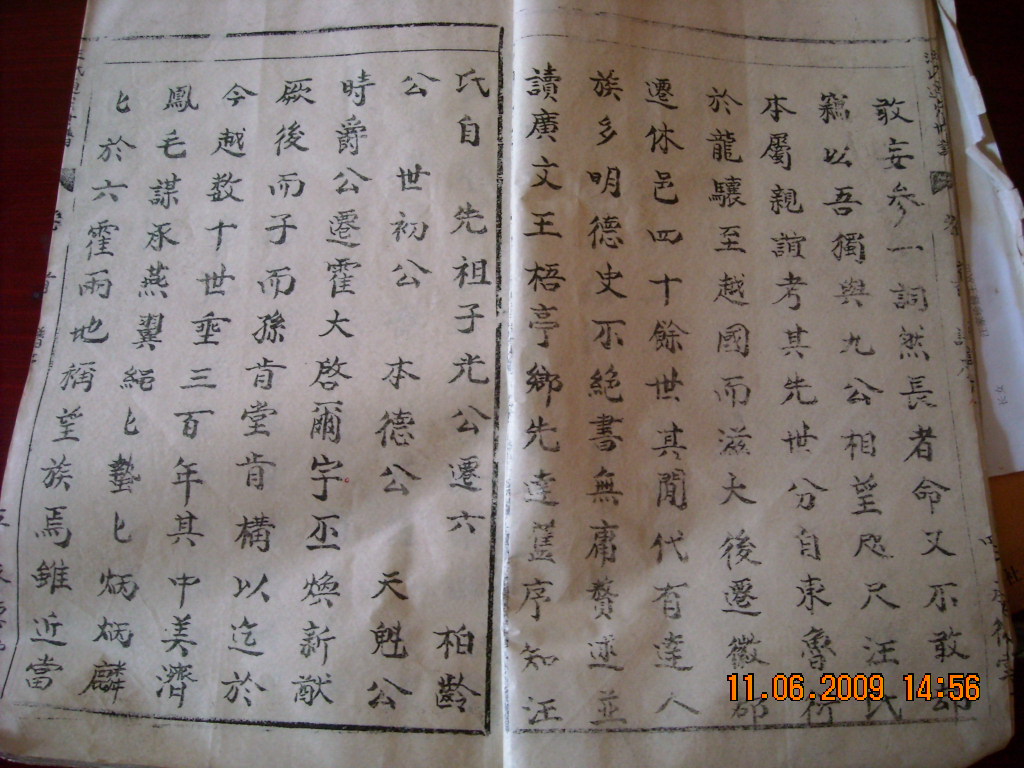 敢妄參一詞然長者命又不敢却
竊以吾獨與九公相望咫尺汪氏
本屬親誼考其先世分自東魯衍
於龍驤至越國而滋大後遷徽郡
遷休邑四十餘世其間代有達人
族多明德史不絕書無庸贅述並
讀廣文王梧亭鄉先達藍序知汪
氏自 先祖子光公遷六 柏齡
公 世初公 本德公 天魁公
時爵公遷霍大啓爾宇丕煥新猷
厥後而子而孫肯堂肯構以迄於
今越数十世垂三百年其中美濟
鳳毛謀承燕翼繩匕蟄匕炳炳麟
匕於六霍雨地稱望族焉雖近當
11.06.2009 14:56